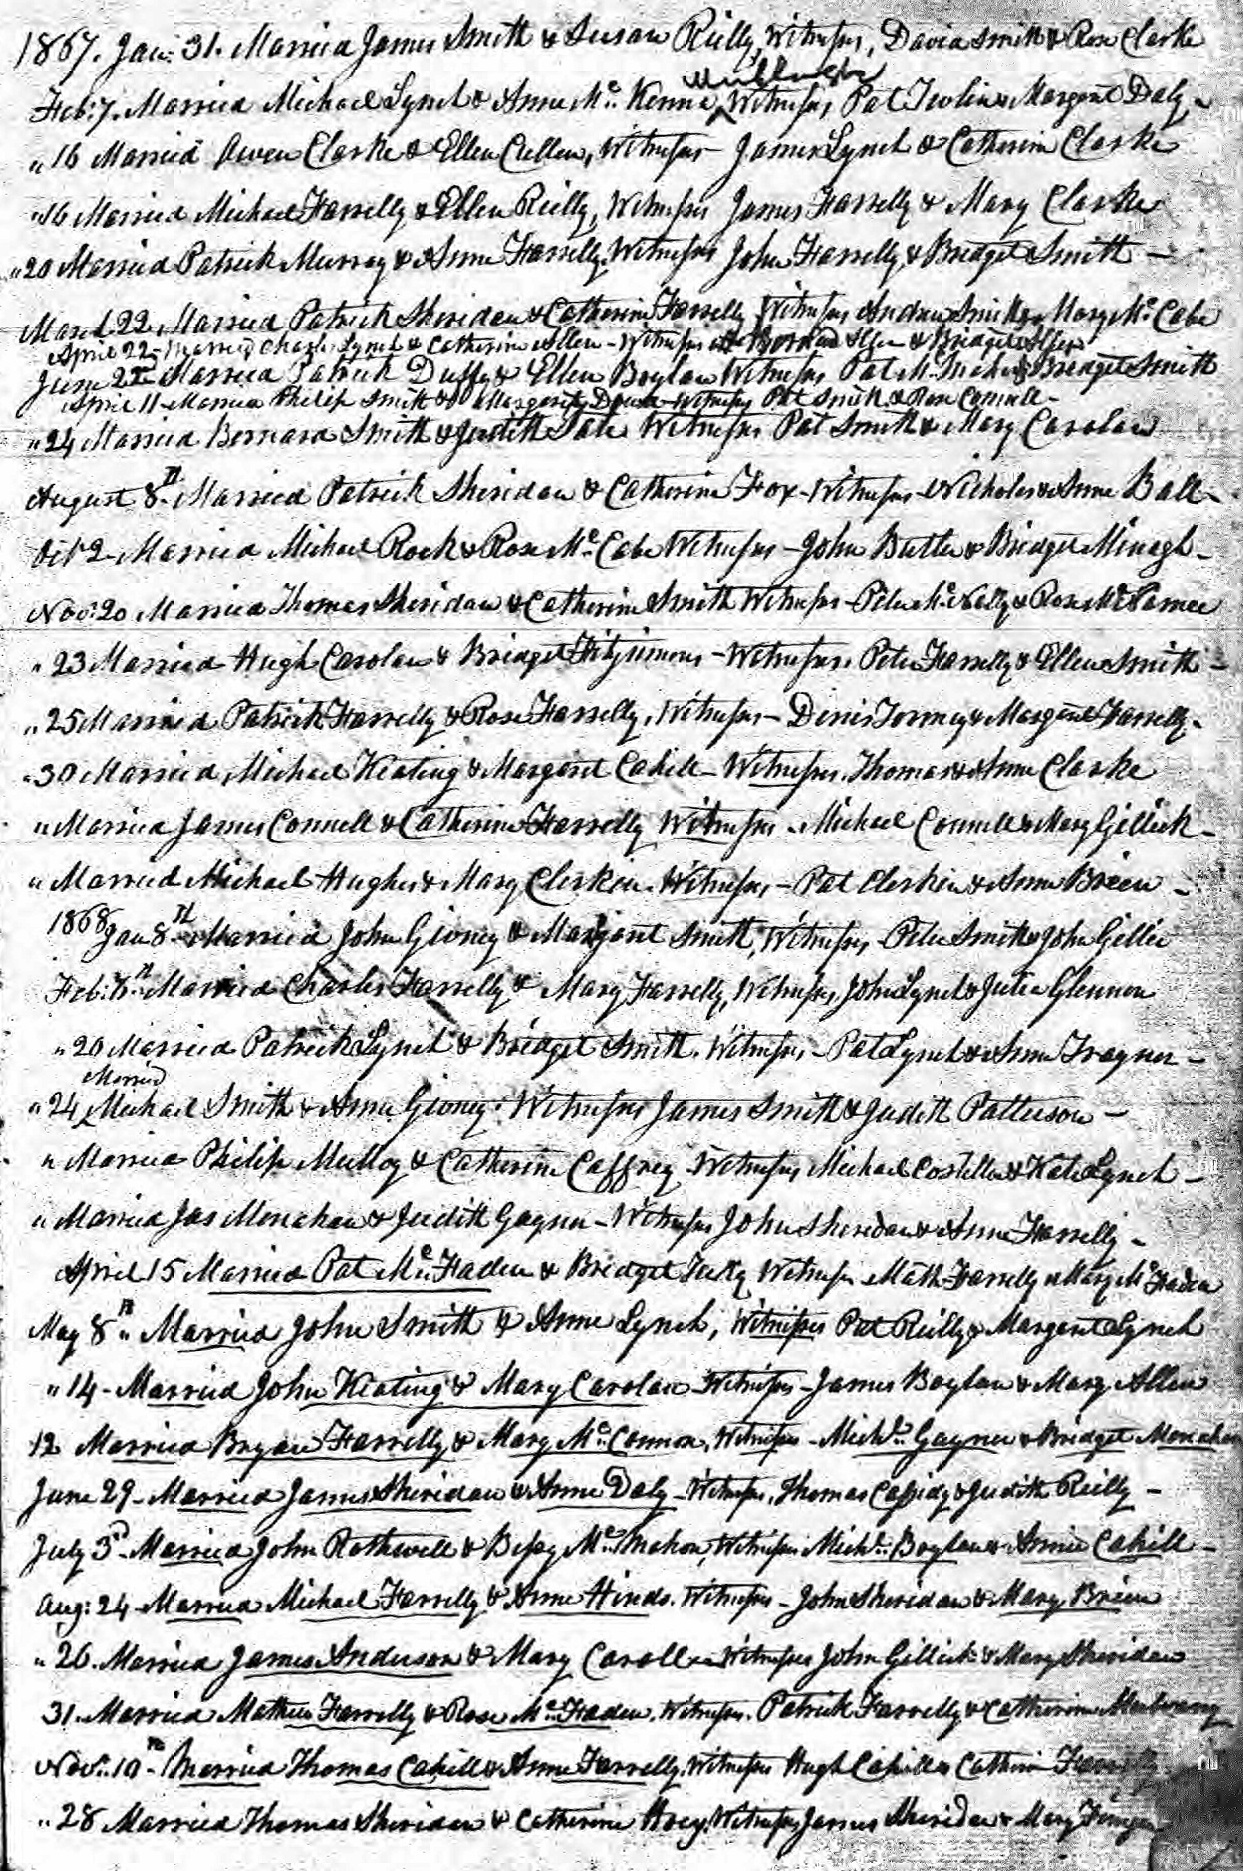 1867. Jan: 31. Married James Smith & Susan Reilly, Witnesses, David Smith & Rose Clarke
Feb: 7. Married Michael Lynch & Anne Mc. Kenna, Witnesses, Pat Tevlin & Margaret Daly -
" 16 Married Owen Clarke & Ellen Cullen, Witnesses - James Lynch & Catherine Clarke
" 16 Married Michael Farrelly & Ellen Reilly, Witnesses James Farrelly & Mary Clarke
" 20 Married Patrick Murray & Anne Farrelly. Witnesses John Farrelly & Bridget Smith -
March 22. Married Patrick Sheridan & Catherine Farrelly Witnesses Andrew Smith & Mary Mc. Cabe
April 22 - Married Charles Lynch & Catherine Allen - Witnesses Bernard & Bridget
June 22nd Married Patrick Duffy & Ellen Boylan Witnesses Pat Mc. Mahon & Bridget Smith
April 11 - Married Philip Smith & Margaret Witnesses Pat Smith & Rose Connell -
" 24 Married Bernard Smith & Judith Witnesses Pat Smith & Mary Carolan
August 8th. Married Patrick Sheridan & Catherine Fox - Witnesses - Nicholas & Anne Ball -
Oct 2 - Married Michael Rock & Rose Mc. Cabe Witnesses - John Butler & Bridget Minagh -
Nov: 20 Married Thomas Sheridan & Catherine Smith Witnesses - Peter Mc. Nally & Rose Mc. Namee
" 23 Married Hugh Carolan & Bridget Fitzsimons - Witnesses. Peter Farrelly & Ellen Smith -
" 25 Married Patrick Farrelly & Rose Farrelly, Witnesses - Denis Tormey & Margaret Farrelly.
" 30 Married Michael Keating & Margaret Cahill - Witnesses. Thomas & Anne Clarke
" Married James Connell & Catherine Farrelly Witnesses - Michael Connell & Mary Gillick -
" Married Michael Hughes & Mary Clerkin. Witnesses, - Pat Clerkin & Anne Brien -
1868 Jan 8th. Married John Givney & Margaret Smith, Witnesses, - Peter Smith & John Gillic
Feb: Married Charles Farrelly & Mary Farrelly, Witnesses, John Lynch & Julia Glennon
" 20 Married Patrick Lynch & Bridget Smith. Witnesses, - Pat Lynch & Anne Traynor -
Married
" 24 Michael Smith & Anne Givney. Witnesses James Smith & Judith Patterson -
" Married Philip Mulloy & Catherine Caffrey - Witnesses Michael Costello & Kate Lynch -
" Married Jas Monahan & Judith Gaynor - Witnesses John Sheridan & Anne Farrelly -
April 15 Married Pat Mc. Faden & Bridget Witnesses - Math Farrelly & Mary Mc Faden
May 8th " Married John Smith & Anne Lynch, Witnesses Pat Reilly & Margaret Lynch
" 14 - Married John Keating & Mary Carolan - Witnesses - James Boylan & Mary Allen
12 Married Bryan Farrelly & Mary Mc. Connon, Witnesses - Michl. Gaynor & Bridget Monahan
June 29 - Married James Sheridan & Anne Daly - Witnesses, Thomas Cassidy & Judith Reilly -
July 3d - Married John Rothwell & Bessy Mc. Mahon, Witnesses Michl. Boylan & Annie Cahill -
Aug: 24 - Married Michael Farrelly & Anne Hinds. Witnesses - John Sheridan & Mary Brien
" 26. Married James Anderson & Mary Witnesses John Gillick & Mary Sheridan
31 - Married Mathew Farrelly & Rose Mc. Faden. Witnesses. Patrick Farrelly & Catherine
Nov. 10th - Married Thomas Cahill & Anne Farrelly. Witnesses Hugh Cahill & Catherine
" 28 Married Thomas Sheridan & Catherine Hoey, Witnesses James Sheridan & Mary